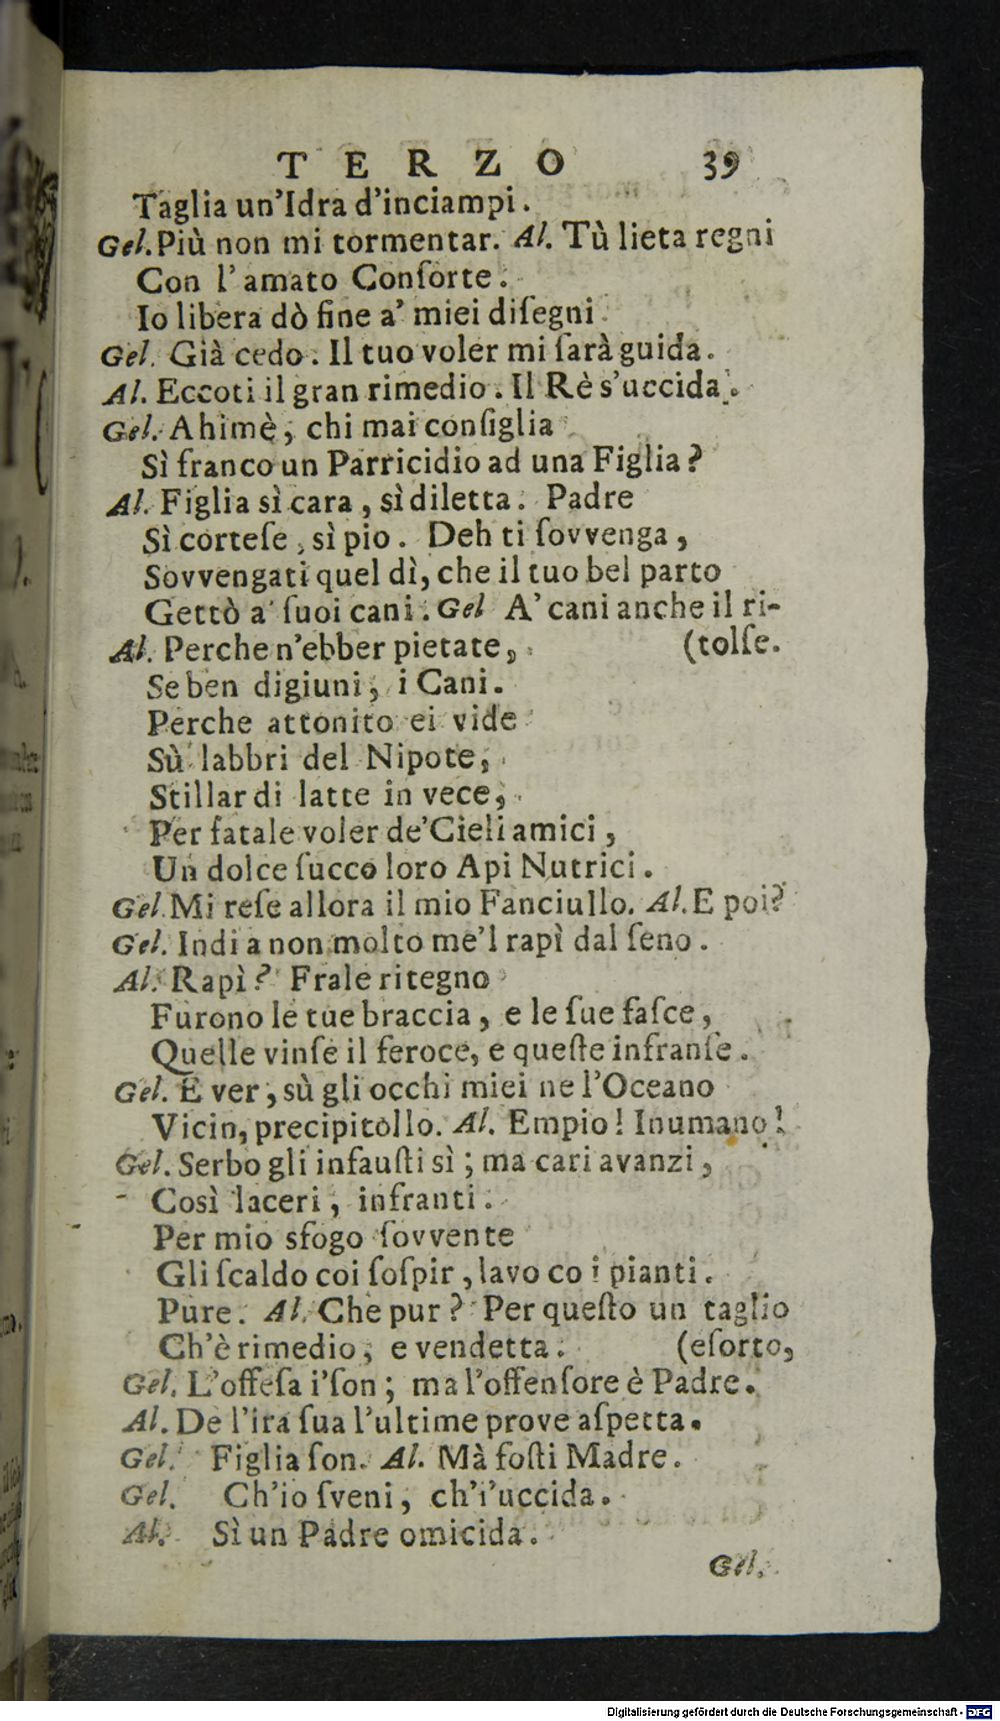 TERZO 39
Taglia un'Idra d'inciampi.
Gel. Più non mi tormentar. Al. Tù lieta regni
Con l'amato Conſorte.
Io libera dò fine a' miei diſegni
Gel. Già cedo. Il tuo voler mi ſarà guida.
Al. Eccoti il gran rimedio. Il Rè s'uccida.
Gel. Ahimè, chi mai conſiglia
Sì franco un Parricidio ad una Figlia?
Al. Figlia sì cara, sì diletta. Padre
Sì corteſe, sì pio. Deh ti ſovvenga,
Sovvengati quel dì, che il tuo bel parto
Gettò a' ſuoi cani. Gel A' cani anche il ri-
Al. Perche n'ebber pietate, (tolſe.
Se ben digiuni, i Cani.
Perche attonito ei vide
Sù labbri del Nipote,
Stillar di latte in vece,
Per fatale voler de' Cieli amici,
Un dolce ſucco loro Api Nutrici.
Gel. Mi reſe allora il mio Fanciullo. Al. E poi?
Gel. Indi a non molto me'l rapì dal ſeno.
Al. Rapì? Frale ritegno
Furono le tue braccia, e le ſue faſce,
Quelle vinſe il feroce, e queſte infranſe.
Gel. E ver, sù gli occhi miei ne l'Oceano
Vicin, precipitollo. Al. Empio! Inumano!
Gel. Serbo gli infauſti sì; ma cari avanzi,
Così laceri, infranti.
Per mio sfogo ſovvente
Gli ſcaldo coi ſoſpir, lavo co i pianti.
Pure. Al. Che pur? Per queſto un taglio
Ch'è rimedio, e vendetta. (eſorto,
Gel. L'offeſa i'ſon; ma l'offenſore è Padre.
Al. De l'ira ſua l'ultime prove aſpetta.
Gel. Figlia ſon. Al. Mà foſti Madre.
Gel. Ch'io ſveni, ch'i'uccida.
Al. Sì un Padre omicida.
Gel.
Digitalisierung gefördert durch die Deutsche Forschungsgemeinschaft - DFG